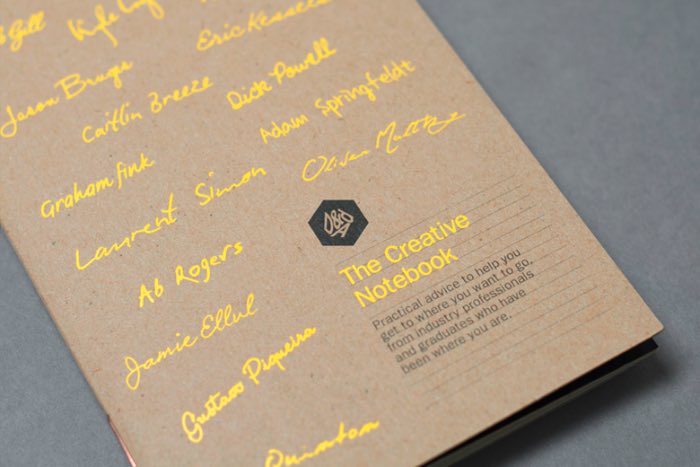 Gill
Kyle
Eric Kessels
Jason Bruges
Caitlin Breeze
Dick Powell
Adam Springfeldt
Graham fink
Laurent Simon
Oliver
D&AD
Ab Rogers
The Creative
Notebook
Practical advice to help you
get to where you want to go,
from industry professionals
and graduates who have
been where you are.
Jamie Ellul
Gustavo Piqueira
Quinton